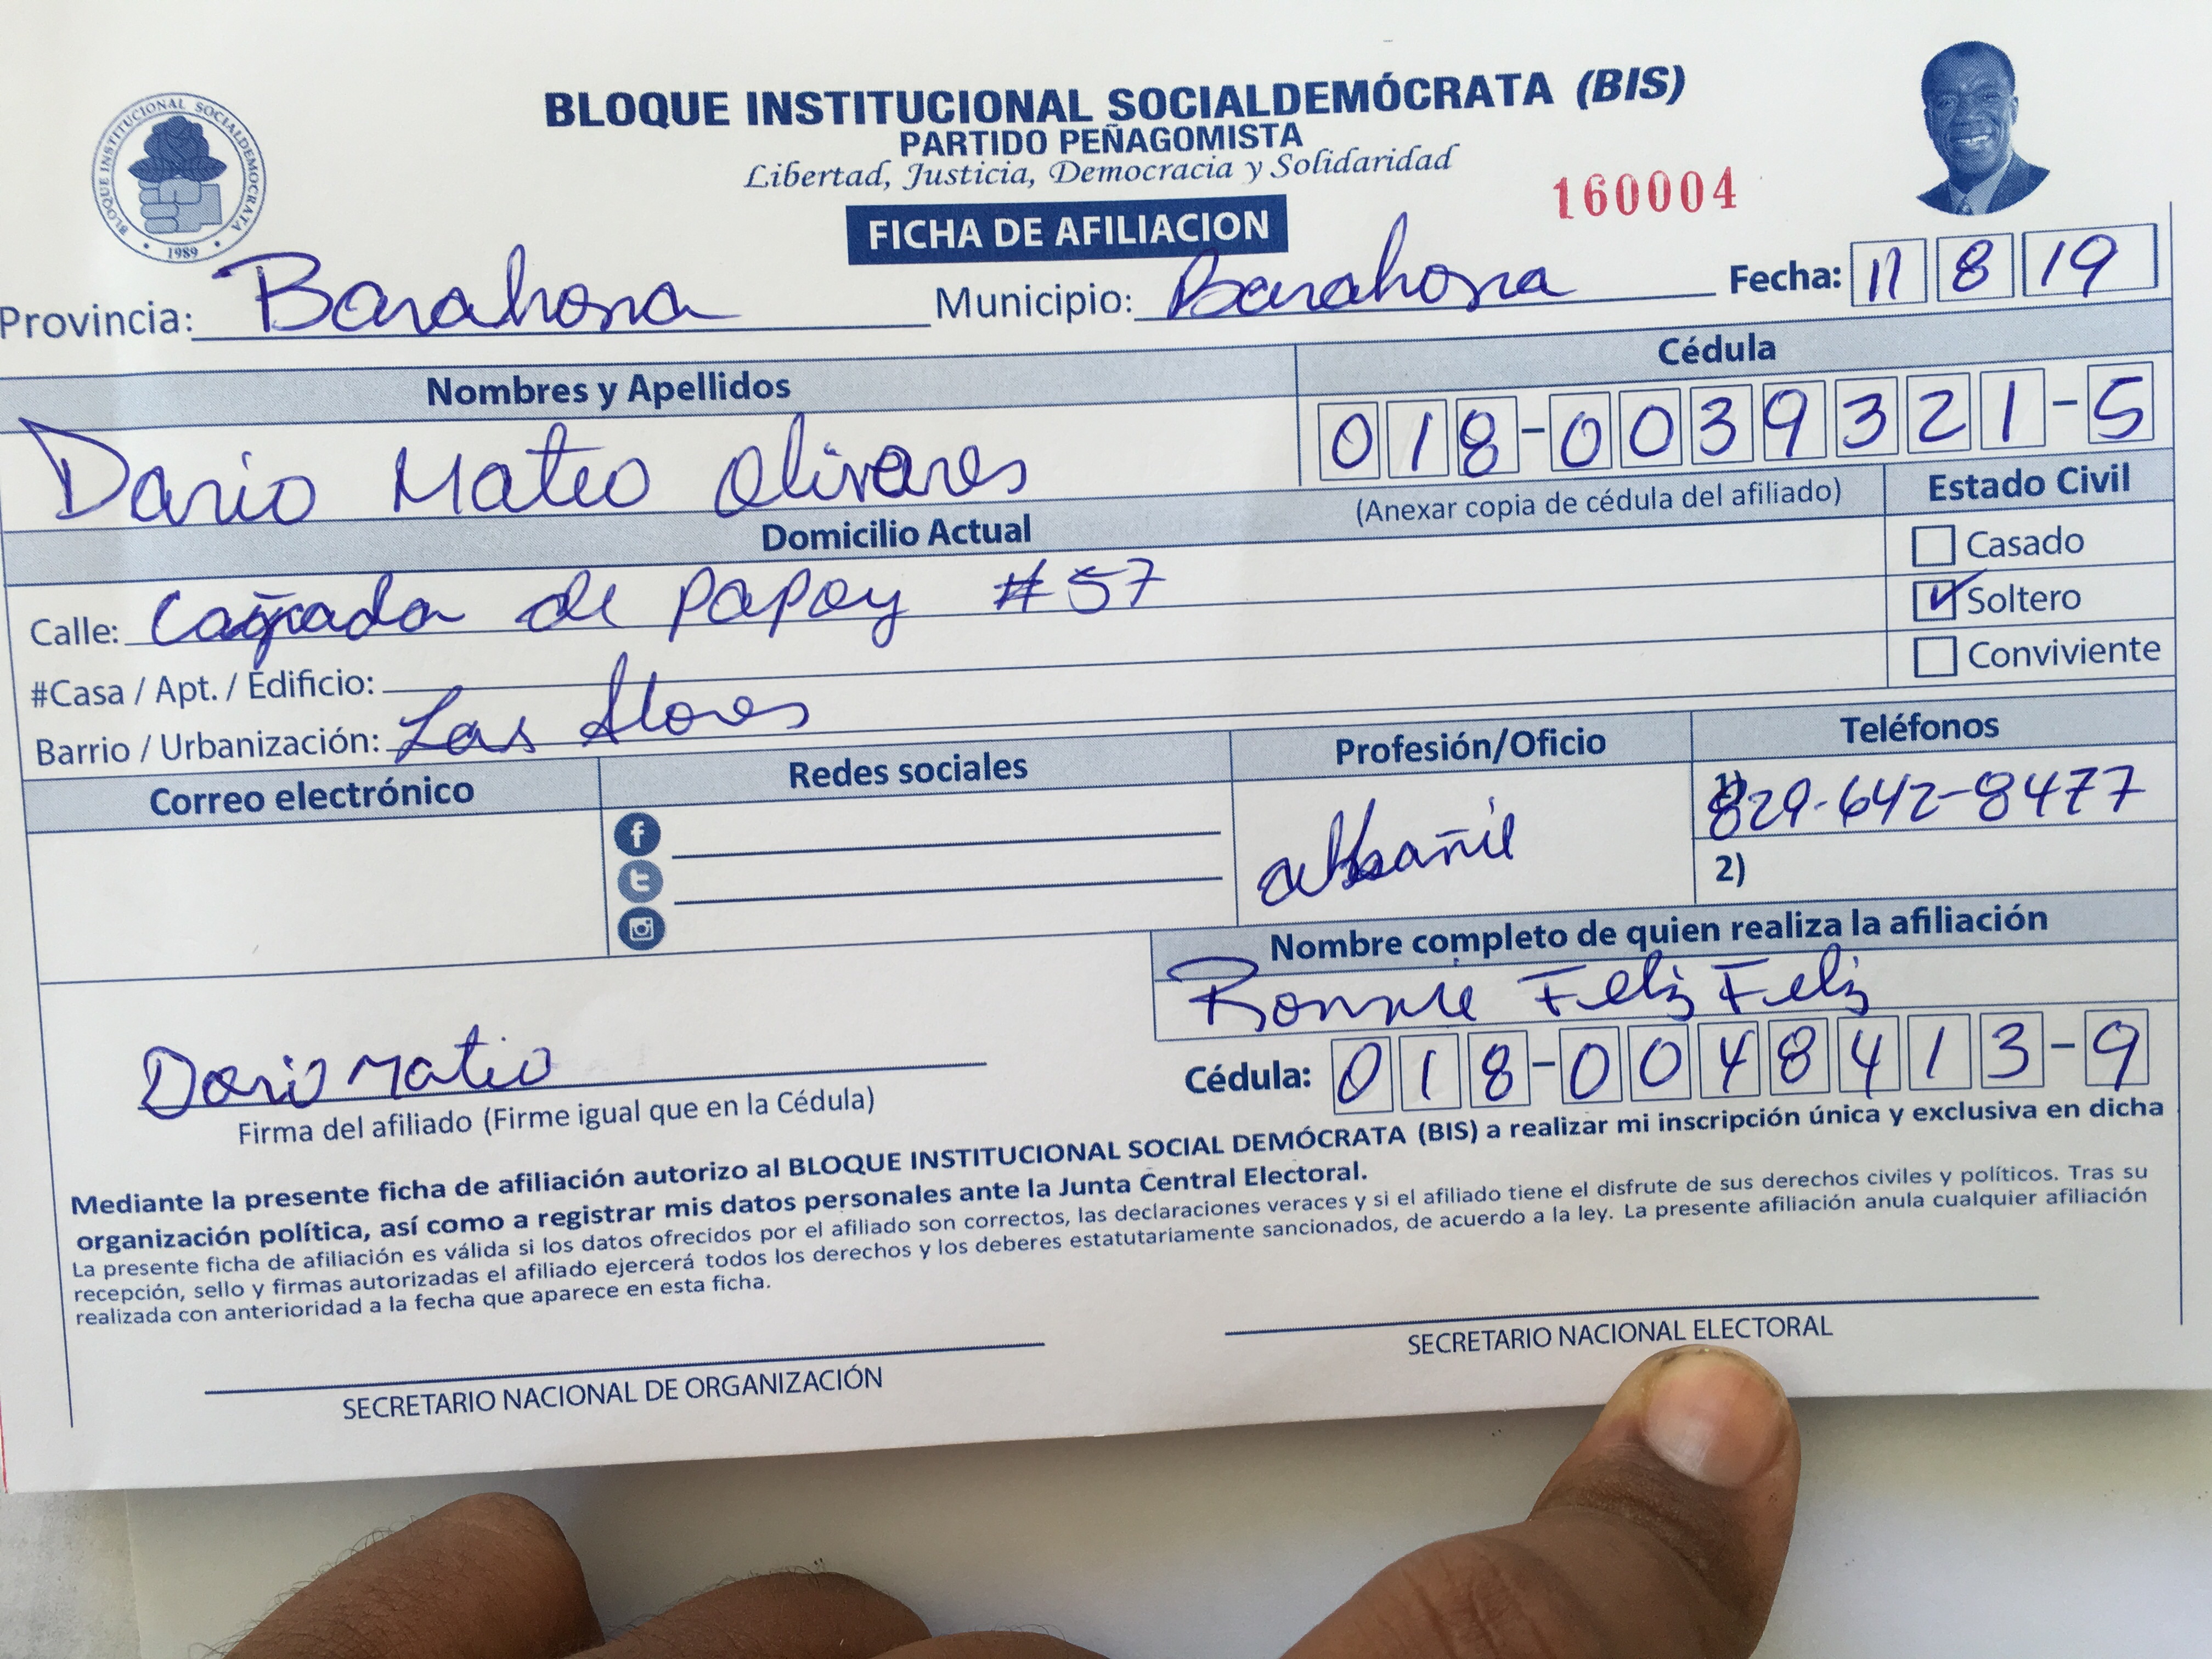 BLOQUE INSTITUCIONAL SOCIALDEMOCRATA
1989
BLOQUE INSTITUCIONAL SOCIALDEMÓCRATA (BIS)
PARTIDO PEÑAGOMISTA
Libertad, Justicia, Democracia y Solidaridad
160004
FICHA DE AFILIACION
Provincia: Barahona Municipio: Barahona Fecha: 11 8 19
Nombres y Apellidos Cédula
Dario Mateo Olivares 018-0039321-5
Domicilio Actual (Anexar copia de cédula del afiliado) Estado Civil
Casado
Calle: Cañada de Papoy #57 Soltero
#Casa / Apt. / Edificio: Conviviente
Barrio / Urbanización: Las flores
Correo electrónico Redes sociales Profesión/Oficio Teléfonos
albañil 1) 829-642-8477
2)
Nombre completo de quien realiza la afiliación
Ronnie Feliz Feliz
Dario Mateo Cédula: 018-0048413-9
Firma del afiliado (Firme igual que en la Cédula)
Mediante la presente ficha de afiliación autorizo al BLOQUE INSTITUCIONAL SOCIAL DEMÓCRATA (BIS) a realizar mi inscripción única y exclusiva en dicha
organización política, así como a registrar mis datos personales ante la Junta Central Electoral.
La presente ficha de afiliación es válida si los datos ofrecidos por el afiliado son correctos, las declaraciones veraces y si el afiliado tiene el disfrute de sus derechos civiles y políticos. Tras su
recepción, sello y firmas autorizadas el afiliado ejercerá todos los derechos y los deberes estatutariamente sancionados, de acuerdo a la ley. La presente afiliación anula cualquier afiliación
realizada con anterioridad a la fecha que aparece en esta ficha.
SECRETARIO NACIONAL DE ORGANIZACIÓN SECRETARIO NACIONAL ELECTORAL